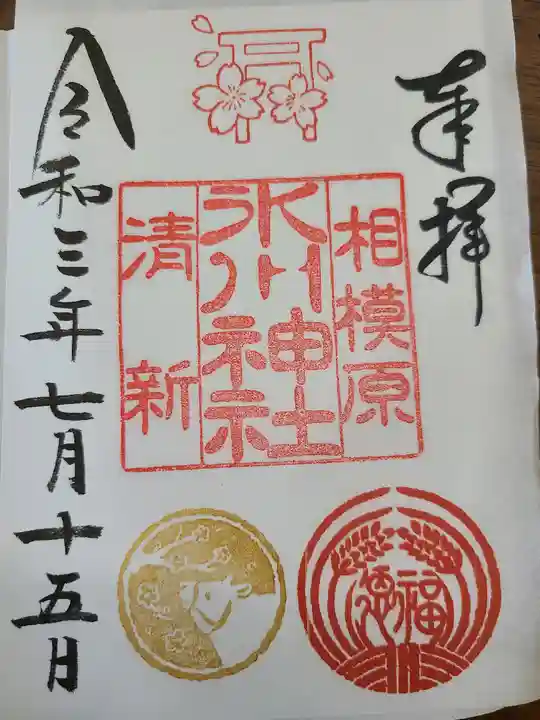 奉拝
相模原
氷川神社
清新
福
令和三年七月十五日